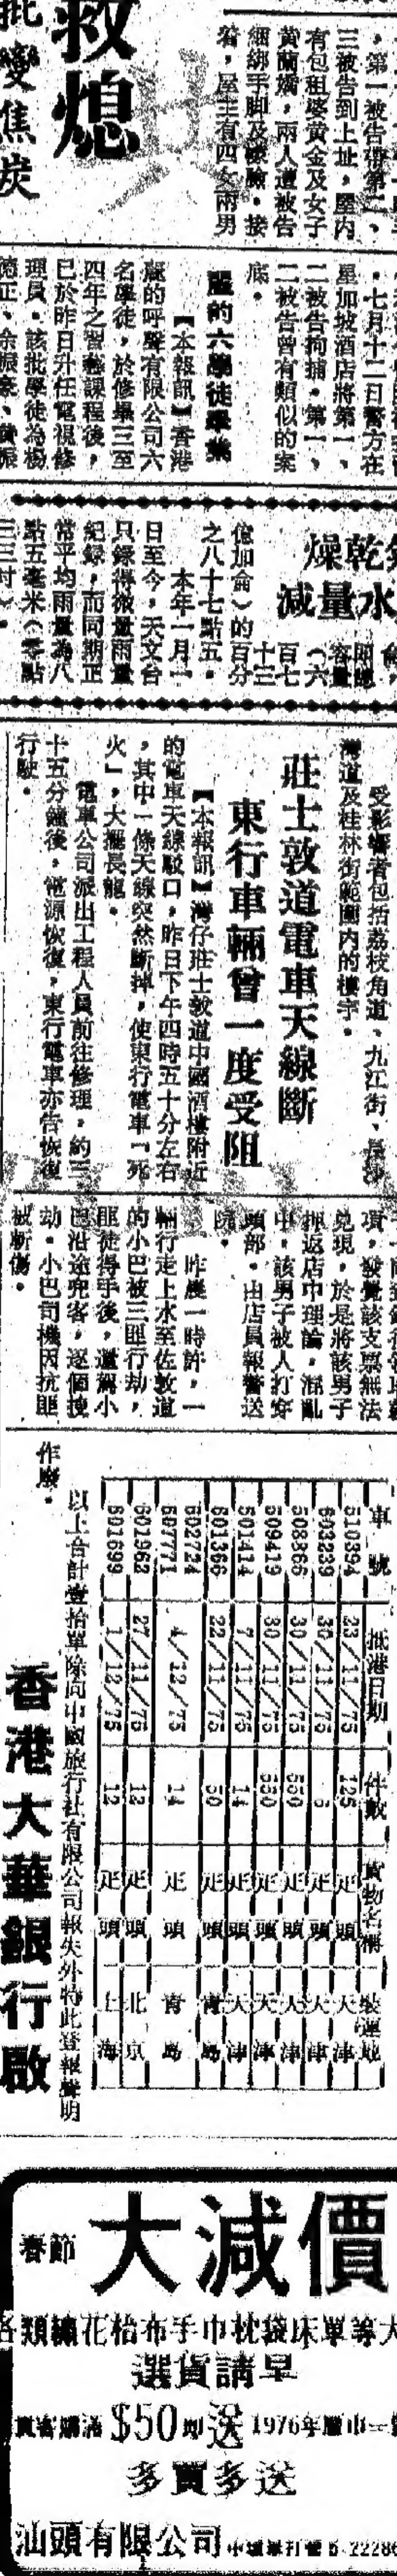 救熄
批變焦炭
，第一被告帶第二、
三被告到上址，屋內
有包租婆黃金及女子
黃蘭嬌，兩人遭被告
綑綁手脚及
着，屋主有四女兩男
七月十二日警方在
星加坡酒店將第一、
二被告拘捕。第一、
二被告曾有類似的案
底。
的六學徒畢業
【本報訊】香港
的呼聲有限公司六
名學徒，於修畢三至
四年之習藝課程後，
已於昨日升任電視修
理員。該批學徒為楊
德正、余振豪、黃振
乾燥
水量減
容量
（六
百七
十三
億加侖）的百分
之八十七點五。
本年一月一
日至今，天文台
只錄得微量雨量
紀錄，而同期正
常平均雨量為八
點五毫米（零點
三三吋）。
受影響者包括荔枝角道、九江街、長沙
灣道及桂林街範圍內的樓宇。
莊士敦道電車天線斷
東行車輛曾一度受阻
【本報訊】灣仔莊士敦道中國酒樓附近
的電車天線駁口，昨日下午四時五十分左右
，其中一條天線突然斷掉，使東行電車「死
火」，大擺長龍。
電車公司派出工程人員前往修理，約三
十五分鐘後，電源恢復，東行電車亦告恢復
行駛。
項，發覺該支票無法
兌現，於是將該男子
押返店中理論，混亂
中，該男子被人打穿
頭部。由店員報警送
院。
昨晨一時許，一
輛行走上水至佐敦道
的小巴被三匪行劫，
匪徒得手後，還駕小
巴沿途兜客，逐個搜
劫。小巴司機因抗匪
被斬傷。
車號 抵港日期 件數 貨物名稱 裝運地
510394 23/11/75 125 疋頭 天津
603239 30/11/75 6 疋頭 天津
508866 30/11/75 550 疋頭 天津
509419 30/11/75 550 疋頭 天津
501414 7/11/75 14 疋頭 天津
601366 22/11/75 50 疋頭 青島
602724
507771 4/12/75 14 疋頭 青島
601962 27/11/75 12 疋頭 北京
601699 1/12/75 12 疋頭 上海
以上合計壹拾單除向中國旅行社有限公司報失外特此登報聲明
作廢。
香港大華銀行啟
春節 大減價
大等單床袋枕巾手布枱花繡類各
早請貨選
貴客購滿$50即送1976年曆巾一
多買多送
汕頭有限公司